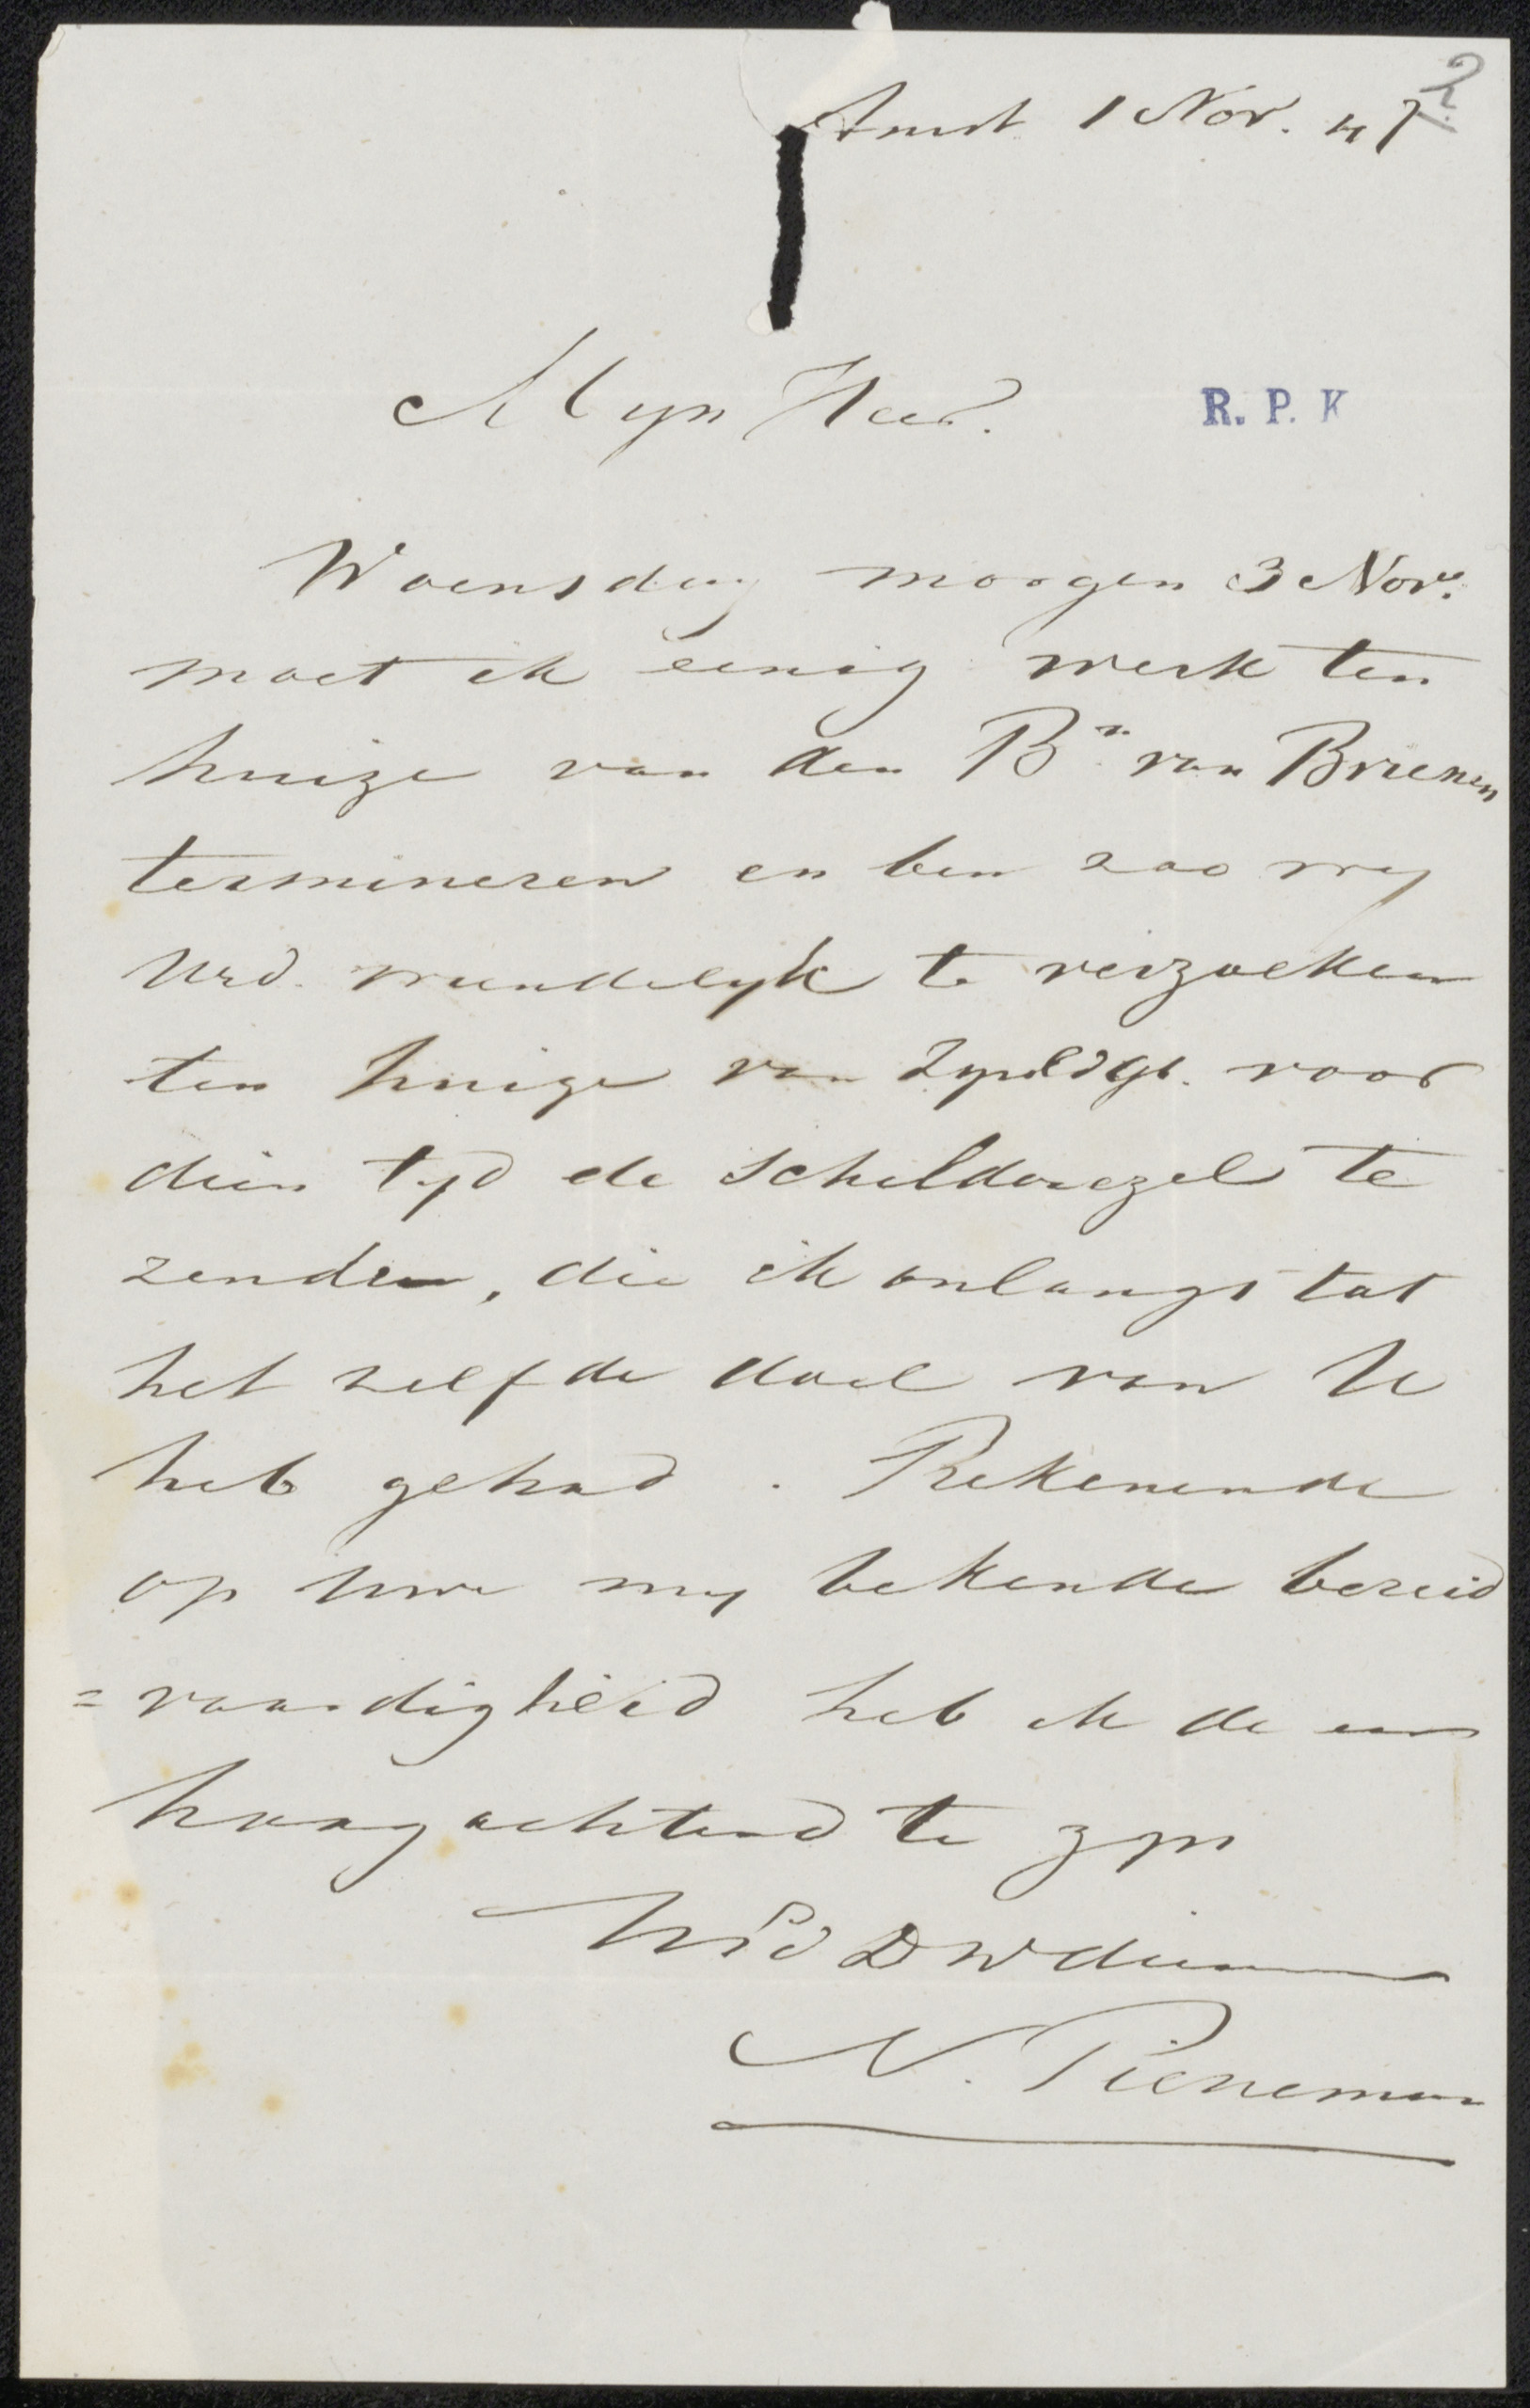 2
Amst 1 Nov. 47
Mijn Heer.
R. P. K
Woensdag morgen 3 Nov.
moet ik eenig werk ten
huize van den Bn. van Brienen
termineren en ben zoo vry
UEd. vriendelyk te verzoeken
ten huize van voor
dien tyd de schilderezel te
zenden, die ik onlangs tot
het zelfde doel van U
heb gehad. Rekenende
op Uwe my bekende bereid
=vaardigheid heb ik de eer
hoogachtend te zyn
UEd DW dienaar
N. Pieneman